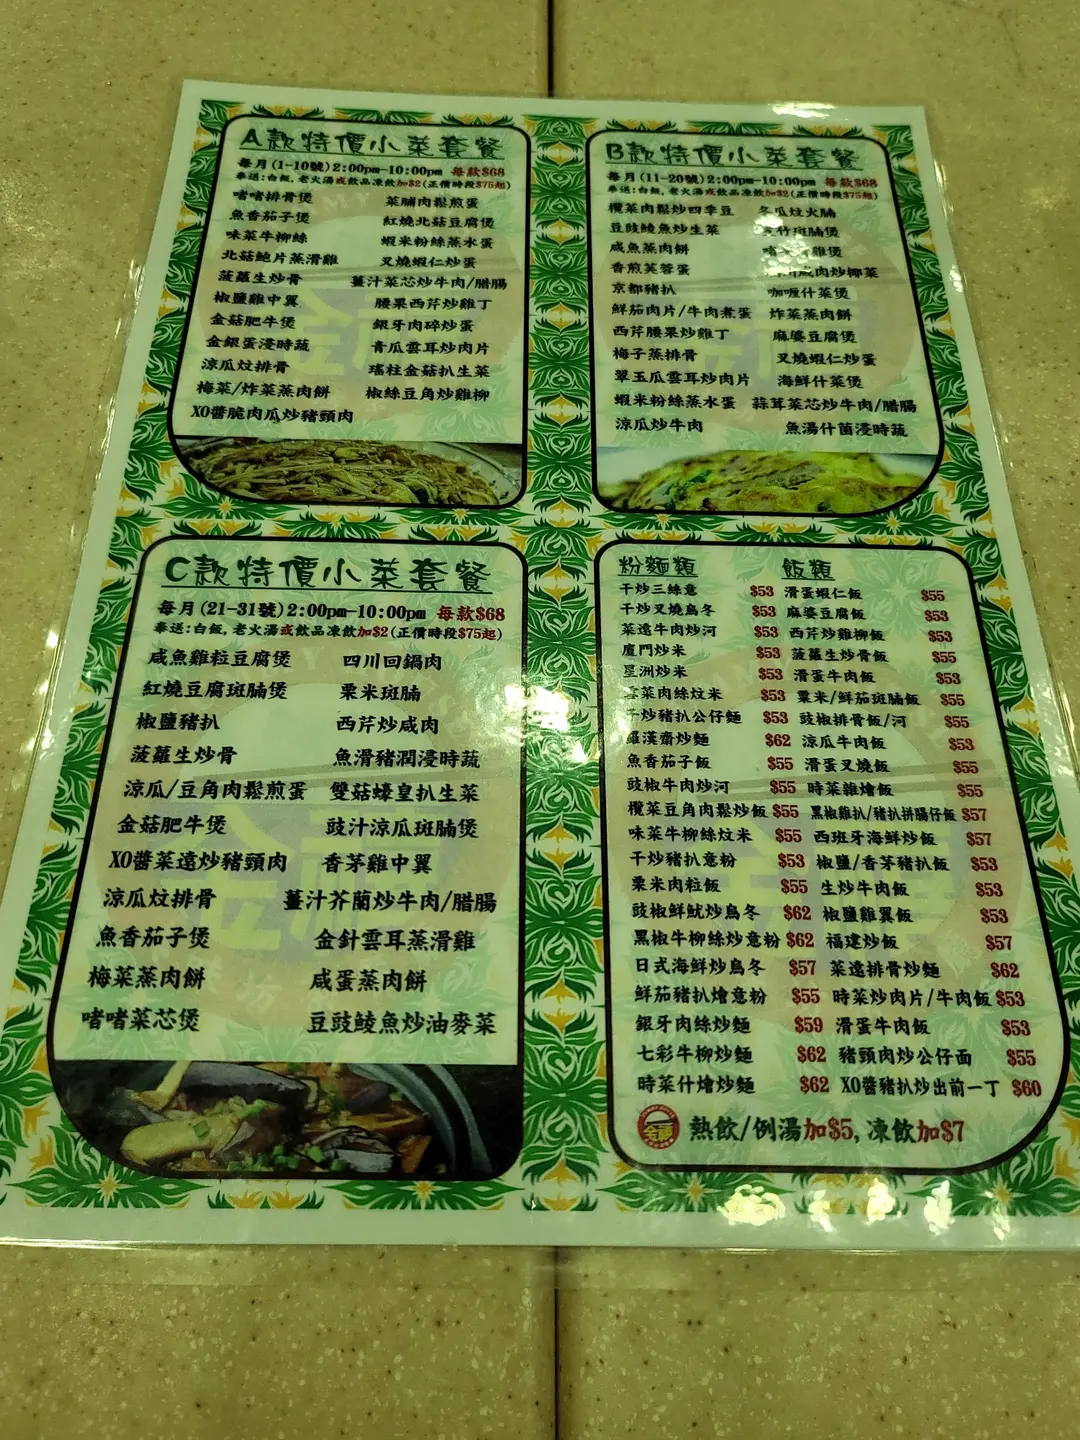 A款特價小菜套餐
每月(1-10號)2:00pm-10:00pm 每款$68
奉送:白飯,老火湯或飲品凍飲加$2(正價時段$75起)
啫啫排骨煲 菜脯肉鬆煎蛋
魚香茄子煲 紅燒北菇豆腐煲
味菜牛柳絲 蝦米粉絲蒸水蛋
北菇鮑片蒸滑雞 叉燒蝦仁炒蛋
菠蘿生炒骨 薑汁菜芯炒牛肉/腊腸
椒鹽雞中翼 腰果西芹炒雞丁
金菇肥牛煲 銀牙肉碎炒蛋
金銀蛋浸時蔬 青瓜雲耳炒肉片
涼瓜炆排骨 瑤柱金菇扒生菜
梅菜/炸菜蒸肉餅 椒絲豆角炒雞柳
XO醬脆肉瓜炒豬頸肉
B款特價小菜套餐
每月(11-20號)2:00pm-10:00pm 每款$68
奉送:白飯,老火湯或飲品凍飲加$2(正價時段$75起)
欖菜肉鬆炒四季豆 冬瓜炆火腩
豆豉鯪魚炒生菜 竹斑腩煲
咸魚蒸肉餅 雞煲
香煎芙蓉蛋 咸肉炒椰菜
京都豬扒 咖喱什菜煲
鮮茄肉片/牛肉煮蛋 炸菜蒸肉餅
西芹腰果炒雞丁 麻婆豆腐煲
梅子蒸排骨 叉燒蝦仁炒蛋
翠玉瓜雲耳炒肉片 海鮮什菜煲
蝦米粉絲蒸水蛋 蒜茸菜芯炒牛肉/腊腸
涼瓜炒牛肉 魚湯什菌浸時蔬
C款特價小菜套餐
每月(21-31號)2:00pm-10:00pm 每款$68
奉送:白飯,老火湯或飲品凍飲加$2(正價時段$75起)
咸魚雞粒豆腐煲 四川回鍋肉
紅燒豆腐斑腩煲 粟米斑腩
椒鹽豬扒 西芹炒咸肉
菠蘿生炒骨 魚滑豬潤浸時蔬
涼瓜/豆角肉鬆煎蛋 雙菇蠔皇扒生菜
金菇肥牛煲 豉汁涼瓜斑腩煲
XO醬菜遠炒豬頸肉 香茅雞中翼
涼瓜炆排骨 薑汁芥蘭炒牛肉/腊腸
魚香茄子煲 金針雲耳蒸滑雞
梅菜蒸肉餅 咸蛋蒸肉餅
啫啫菜芯煲 豆豉鯪魚炒油麥菜
粉麵類 飯類
干炒三絲意 $53 滑蛋蝦仁飯 $55
干炒叉燒烏冬 $53 麻婆豆腐飯 $53
菜遠牛肉炒河 $53 西芹炒雞柳飯 $53
廈門炒米 $53 菠蘿生炒骨飯 $55
星洲炒米 $53 滑蛋牛肉飯 $53
菜肉絲炆米 $53 粟米/鮮茄斑腩飯 $55
干炒豬扒公仔麵 $53 豉椒排骨飯/河 $55
羅漢齋炒麵 $62 涼瓜牛肉飯 $53
魚香茄子飯 $55 滑蛋叉燒飯 $55
豉椒牛肉炒河 $55 時菜雜燴飯 $55
欖菜豆角肉鬆炒飯 $55 黑椒雞扒/豬扒拼腸仔飯 $57
味菜牛柳絲炆米 $55 西班牙海鮮炒飯 $57
干炒豬扒意粉 $53 椒鹽/香茅豬扒飯 $53
粟米肉粒飯 $55 生炒牛肉飯 $53
豉椒鮮魷炒烏冬 $62 椒鹽雞翼飯 $53
黑椒牛柳絲炒意粉 $62 福建炒飯 $57
日式海鮮炒烏冬 $57 菜遠排骨炒麵 $62
鮮茄豬扒燴意粉 $55 時菜炒肉片/牛肉飯 $53
銀牙肉絲炒麵 $59 滑蛋牛肉飯 $53
七彩牛柳炒麵 $62 豬頸肉炒公仔面 $55
時菜什燴炒麵 $62 XO醬豬扒炒出前一丁 $60
熱飲/例湯加$5,凍飲加$7